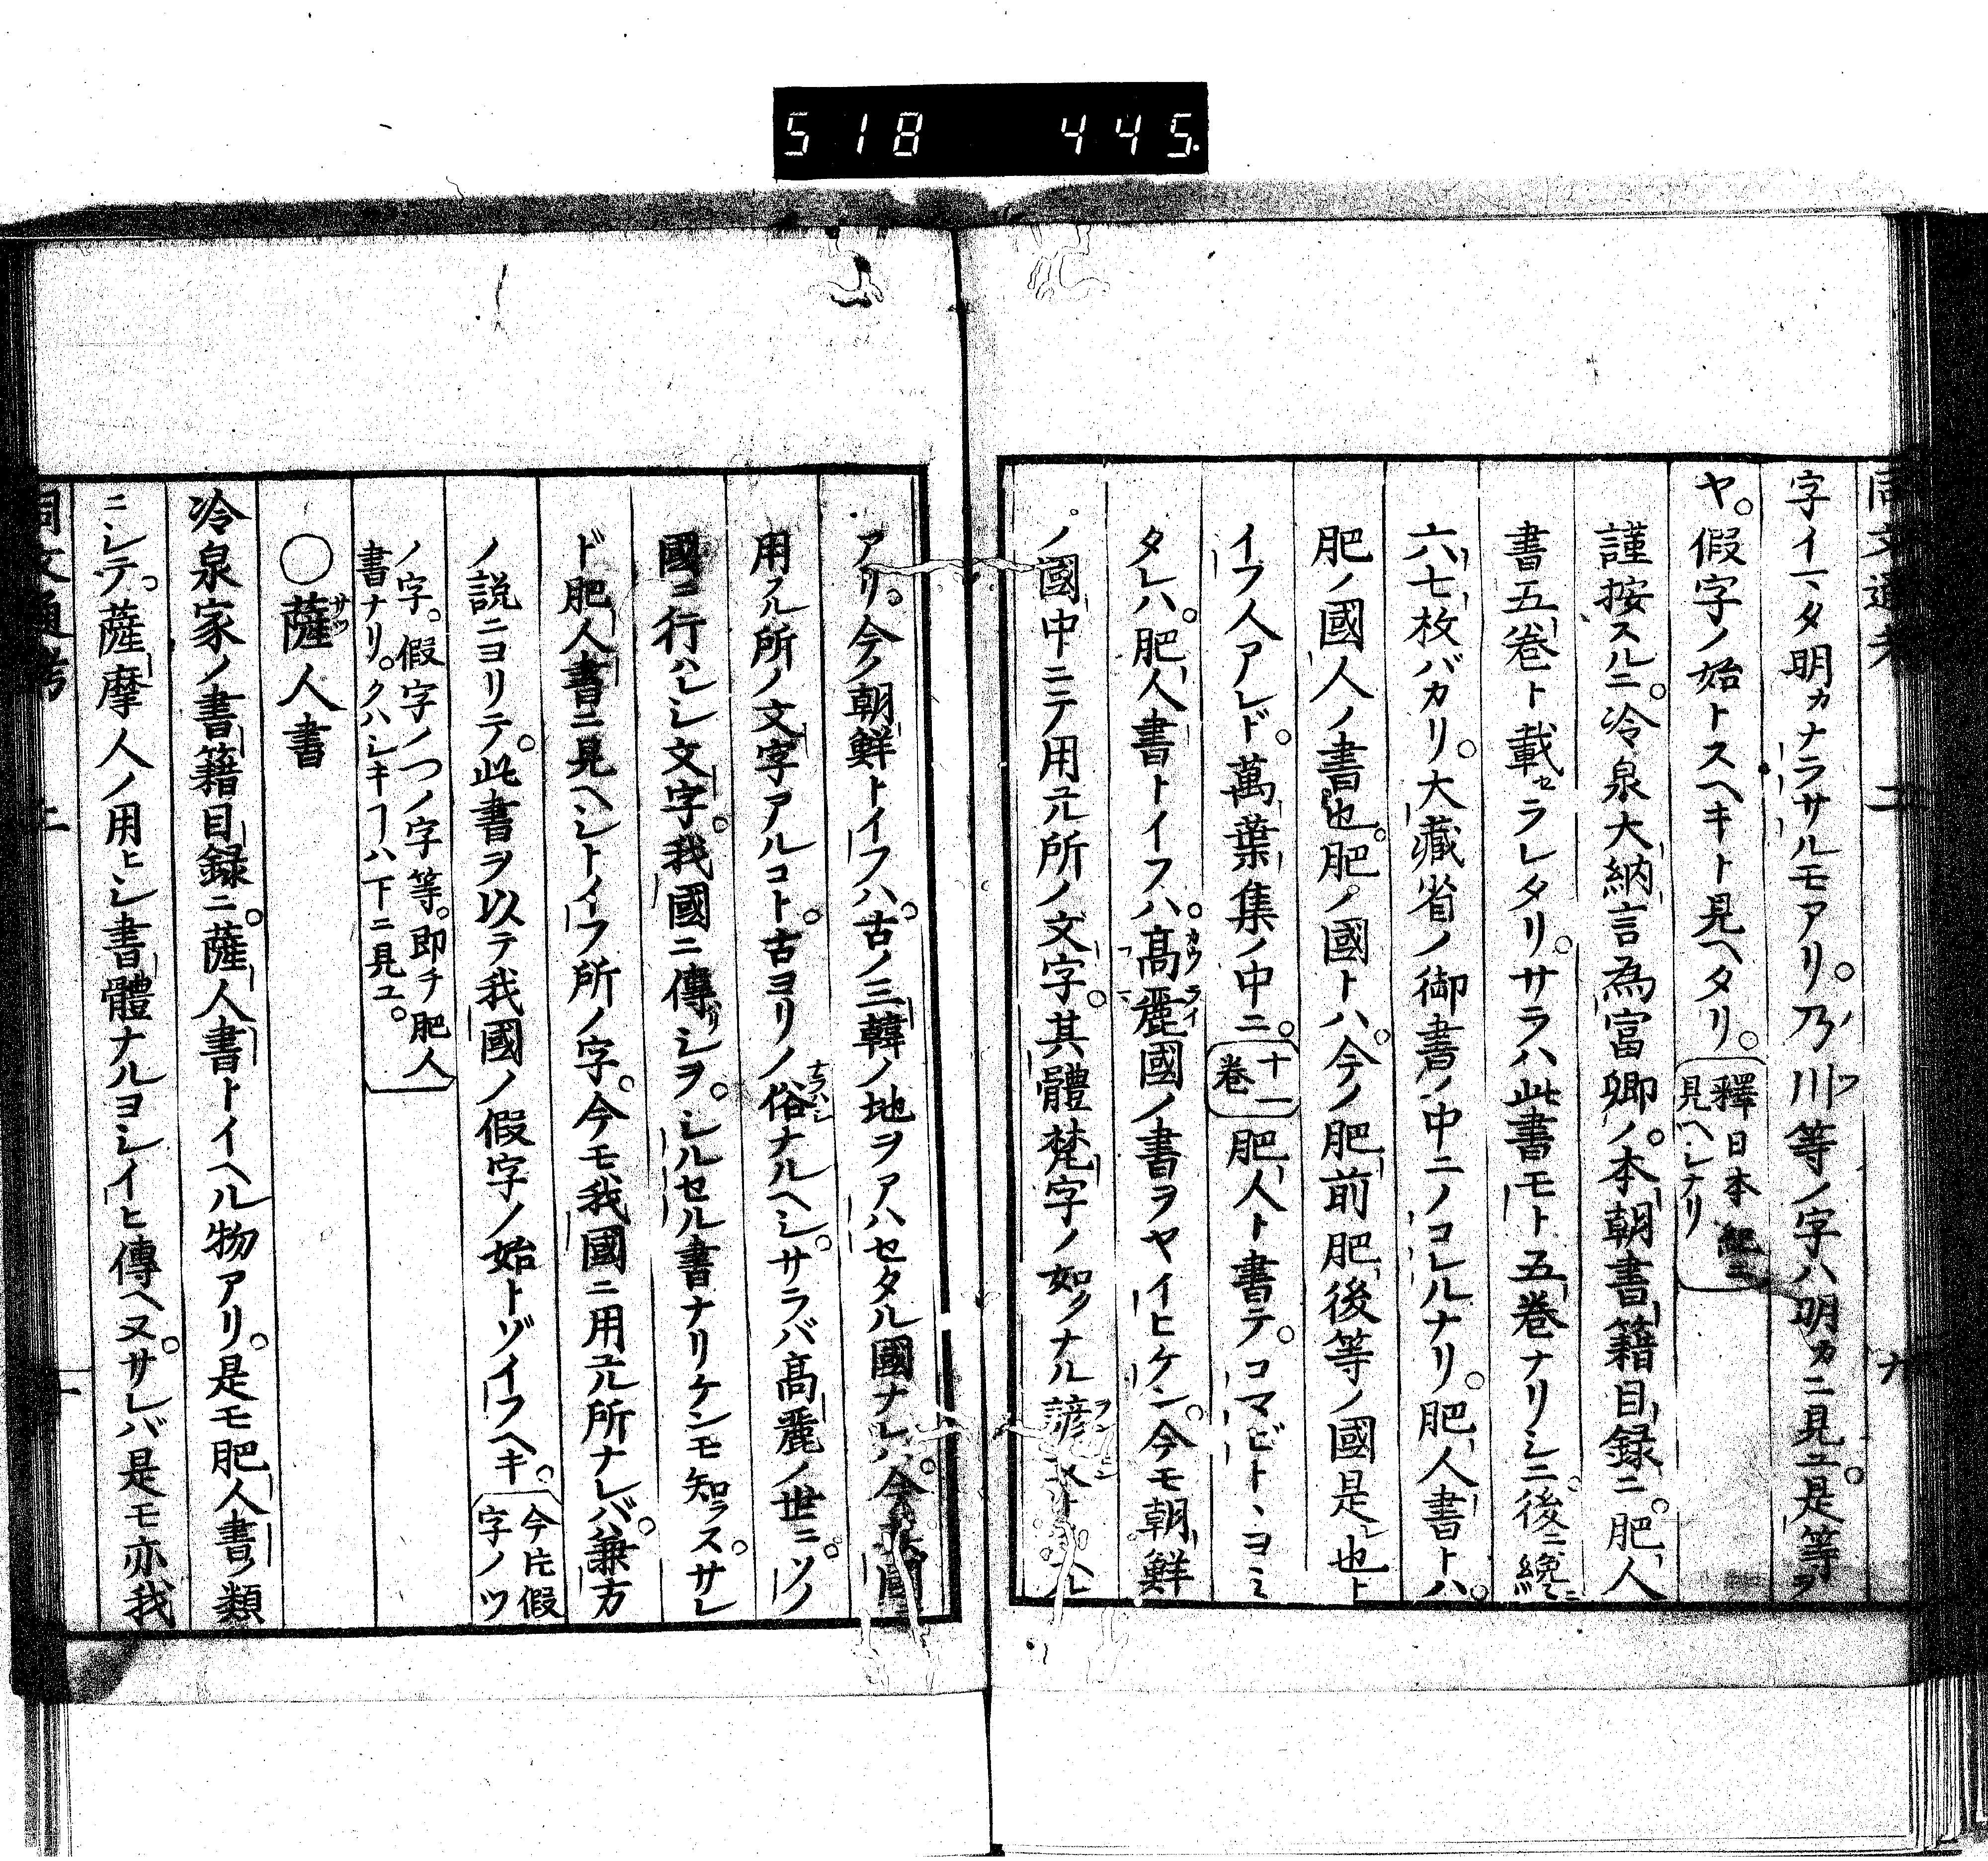 518 445
字イマタ明カナラサルモアリ。乃川等ノ字ハ明カニ見ユ。是等ヲ
ヤ。假字ノ始トスヘキト見ヘタリ。釋日本紀ニ見ヘシナリ
謹按スルニ。冷泉大納言為富卿ノ。本朝書籍目録ニ。肥人
書五巻ト載セラレタリ。サラハ此書モト五巻ナリシニ。後ニ纔ニ
六七枚バカリ。大藏省ノ御書ノ中ニノコレルナリ。肥人書トハ。
肥ノ國人ノ書也。肥ノ國トハ。今ノ肥前肥後等ノ國是也ト
イフ人アレド。萬葉集ノ中ニ。十一巻肥人ト書テ。コマビトヽヨミ
タレハ。肥人書トイフハ。髙麗國ノ書ヲヤイヒケン。今モ朝鮮
ノ國中ニテ用ル所ノ文字。其體梵字ノ如クナル諺
アリ。今ノ朝鮮トイフハ。古ノ三韓ノ地ヲアハセタル國ナレハ。今
用ル所ノ文字アルコト。古ヨリノ俗ナルヘシ。サラバ髙麗ノ世ニ。ソノ
國ニ行ハレシ文字。我國ニ傳リシヲ。シルセル書ナリケンモ知ラス。サレ
ド肥人書ニ見ヘシトイフ所ノ字。今モ我國ニ用ル所ナレバ。兼方
ノ説ニヨリテ。此書ヲ以テ我國ノ假字ノ始トゾイフヘキ。今片假字ノツ
ノ字。假字ノつノ字等。即チ肥人書ナリ。クハシキヿハ下ニ見ユ。
○薩人書
冷泉家ノ書籍目録ニ。薩人書トイヘル物アリ。是モ肥人書ノ類
ニシテ。薩摩人ノ用ヒシ書體ナルヨシイヒ傳ヘヌ。サレバ是モ亦我